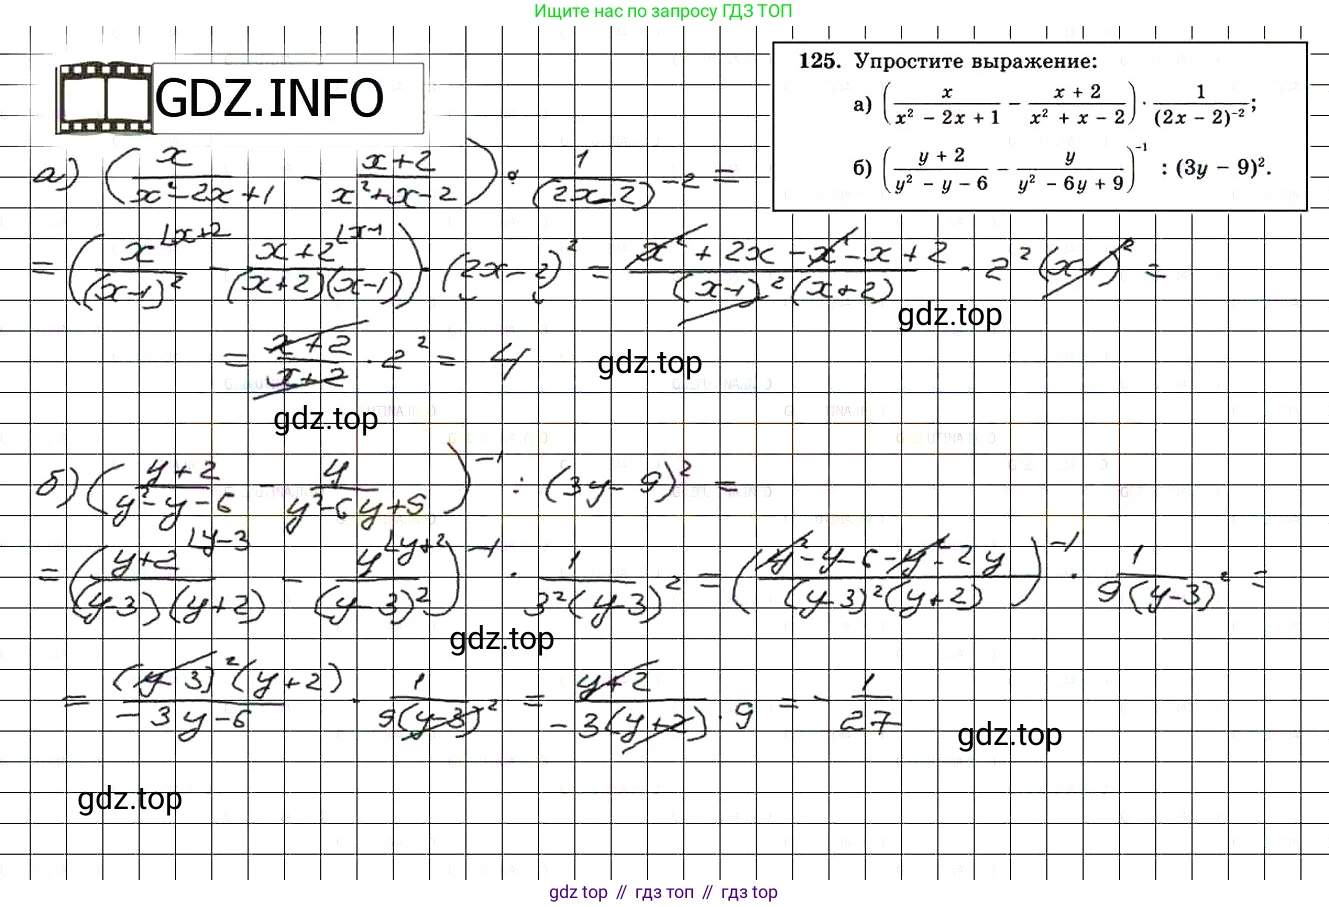 Ищите нас по запросу ГДЗ ТОП
GDZ.INFO
125. Упростите выражение:
а) (x/(x² − 2x + 1) − (x + 2)/(x² + x − 2)) · 1/(2x − 2)⁻²;
б) ((y + 2)/(y² − y − 6) − y/(y² − 6y + 9))⁻¹ : (3y − 9)².
а) (x/(x²-2x+1) - (x+2)/(x²+x-2)) · 1/(2x-2)⁻² =
= (x⌊x+2/(x-1)² - x+2⌊x-1/((x+2)(x-1))) · (2x-2)² = (x²+2x-x²-x+2)/((x-1)²(x+2)) · 2²(x-1)² =
gdz.top
= (x+2)/(x+2) · 2² = 4
gdz.top
gdz.top
б) ((y+2)/(y²-y-6) - y/(y²-6y+9))⁻¹ : (3y-9)² =
= (y+2⌊y-3/((y-3)(y+2)) - y⌊y+2/(y-3)²)⁻¹ · 1/(3²(y-3)²) = ((y²-y-6-y²-2y)/((y-3)²(y+2)))⁻¹ · 1/(9(y-3)²) =
gdz.top
= ((y-3)²(y+2))/(-3y-6) · 1/(9(y-3)²) = (y+2)/(-3(y+2)·9) = -1/27
gdz.top
gdz.top
gdz top // гдз топ // гдз top